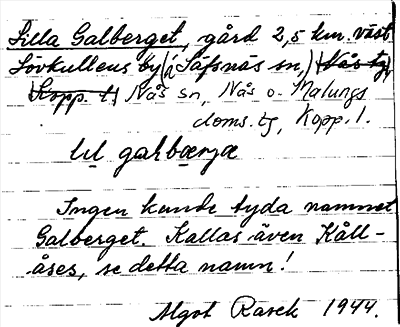 Lilla Galberget, gård 2,5 km. väst
Lövkullens by (i Säfsnäs sn,) Nås tg
Kopp. l. Nås sn, Nås o. Malungs
doms. tg, Kopp. l.
lıl galbærjæ
Ingen kunde tyda namnet
Galberget. Kallas även Kåll-
åses, se detta namn!
Algot Rasck 1944.